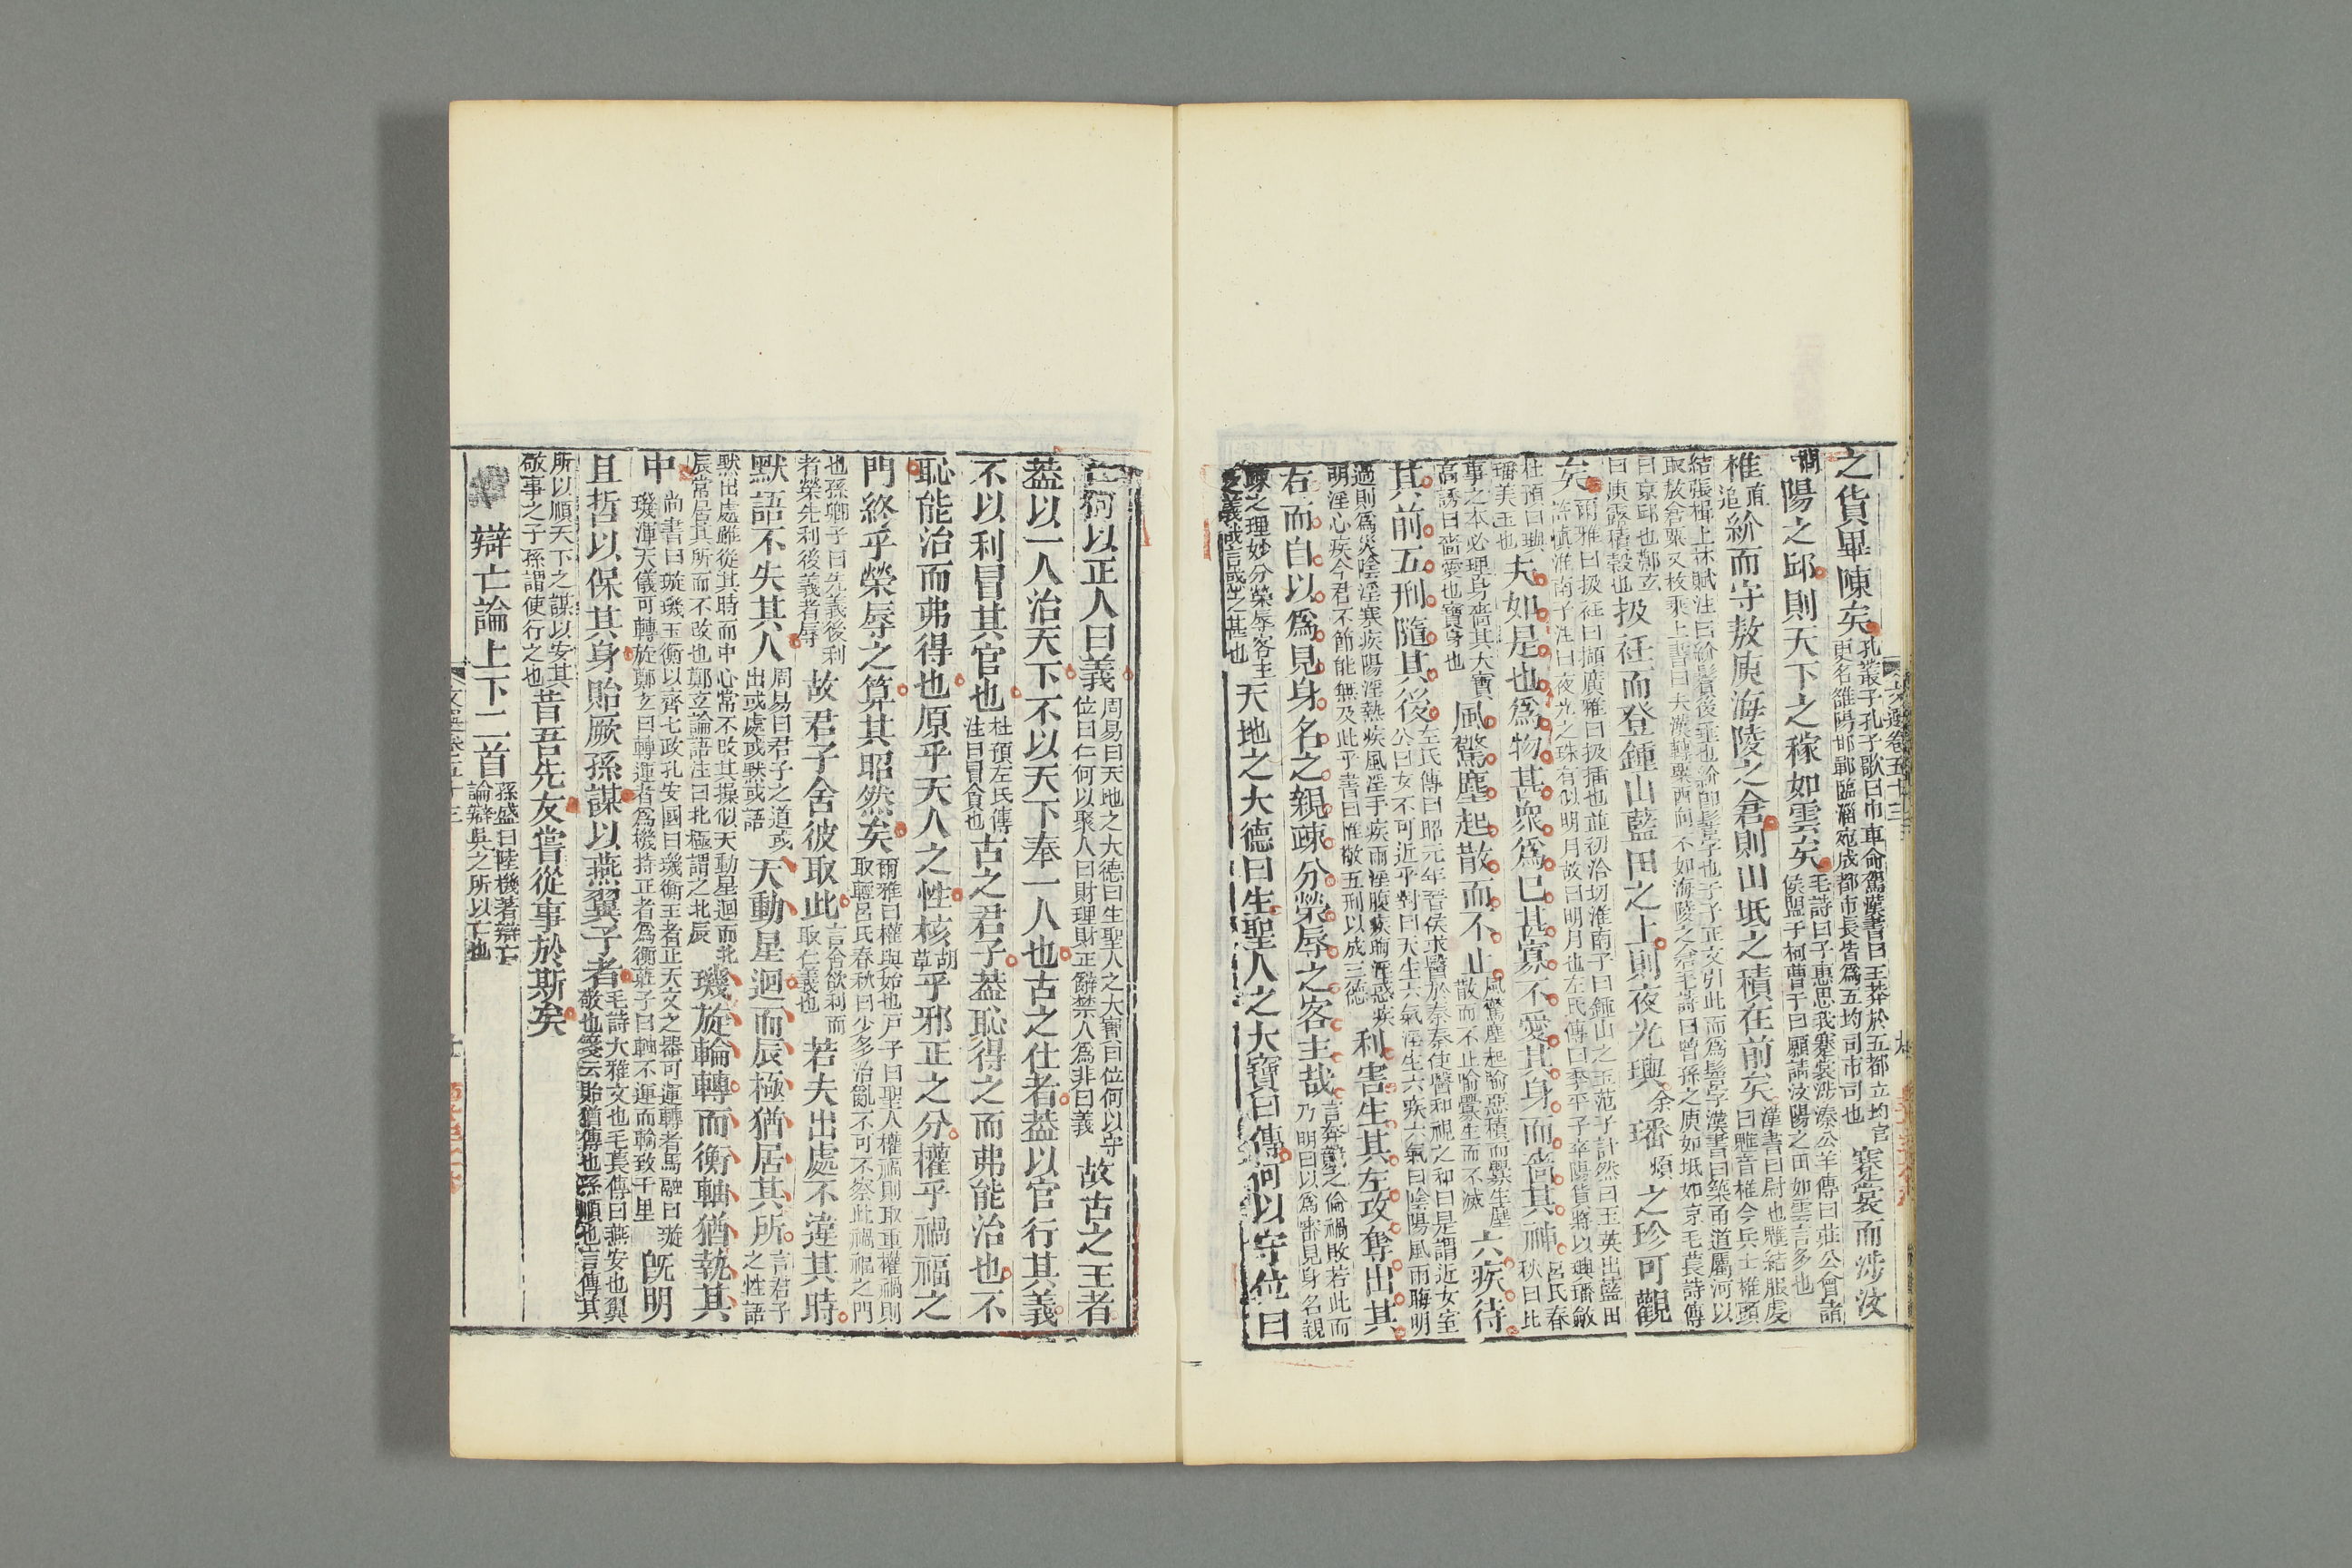 之貨畢陳矣孔叢子孔子歌曰巾車命駕漢書曰王莽於五都立均官更名雒陽邯鄲臨淄宛成都市長皆爲五均司市司也褰裳而涉汶
陽之邱則天下之稼如雲矣毛詩曰子惠思我褰裳涉溱公羊傳曰莊公會諸侯盟于柯曹子曰願請汶陽之田如雲言多也
椎直追紒而守敖庾海陵之倉則山坻之積在前矣漢書曰尉也魋結服虔曰魋音椎今兵士椎頭
結張揖上林賦注曰紒鬢後垂也紒卽髻字也子子正文引此而爲髻字漢書曰築甬道屬河以取敖倉粟又枚乘上書曰夫漢轉粟西向不如海陵之倉毛詩曰曾孫之庾如坻如京毛萇詩傳
曰京邱也鄭玄曰庾露積穀也扱衽而登鍾山藍田之上則夜光璵余璠煩之珍可觀
矣爾雅曰扱衽曰擷廣雅曰扱插也並初洽切淮南子曰鍾山之玉范子計然曰玉英出藍田許慎淮南子注曰夜光之珠有似明月故曰明月也左氏傳曰季平子卒陽貨將以璵璠斂
杜預曰璵璠美玉也夫如是也爲物甚衆爲己甚寡不愛其身而嗇其神呂氏春秋曰比
事之本必理身嗇其大寶高誘曰嗇愛也寶身也風驚塵起散而不止風驚塵起喻惡積而釁生塵散而不止喻釁生而不滅六疾待
其前五刑隨其後左氏傳曰昭元年晉侯求醫於秦秦使醫和視之和曰是謂近女室公曰女不可近乎對曰天生六氣淫生六疾六氣曰陰陽風雨晦明
過則爲災陰淫寒疾陽淫熱疾風淫手疾雨淫腹疾晦淫惑疾明淫心疾今君不節能無及此乎書曰惟敬五刑以成三德利害生其左攻奪出其
右而自以爲見身名之親疎分榮辱之客主哉言奔競之倫禍敗若此而乃明曰以爲審見身名親
疎之理妙分榮辱客主之義哉言惑之甚也天地之大德曰生聖人之大寶曰位何以守位曰
仁何以正人曰義周易曰天地之大德曰生聖人之大寶曰位何以守位曰仁何以聚人曰財理財正辭禁人爲非曰義故古之王者
蓋以一人治天下不以天下奉一人也古之仕者蓋以官行其義
不以利冒其官也杜預左氏傳注曰冒貪也古之君子蓋恥得之而弗能治也不
恥能治而弗得也原乎天人之性核胡革乎邪正之分權乎禍福之
門終乎榮辱之算其昭然矣爾雅曰權輿始也尸子曰聖人權福則取重權禍則取輕呂氏春秋曰少多治亂不可不察此禍福之門
也孫卿子曰先義後利者榮先利後義者辱故君子舍彼取此言舍欲利而取仁義也若夫出處不違其時
默語不失其人周易曰君子之道或出或處或默或語天動星迴而辰極猶居其所言君子之性語
默出處雖從其時而中心常不改其操似天動星迴而北辰常居其所而不改也鄭玄論語注曰北極謂之北辰璣旋輪轉而衡軸猶執其
中尚書曰璇璣玉衡以齊七政孔安國曰璣衡王者正天文之器可運轉者馬融曰璇璣渾天儀可轉旋鄭玄曰轉運者爲機持正者爲衡莊子曰軸不運而輪致千里旣明
且哲以保其身貽厥孫謀以燕翼子者毛詩大雅文也毛萇傳曰燕安也翼敬也箋云貽猶傳也孫順也言傳其
所以順天下之謀以安其敬事之子孫謂使行之也昔吾先友嘗從事於斯矣
辯亡論上下二首孫盛曰陸機著辯亡論辯吳之所以亡也